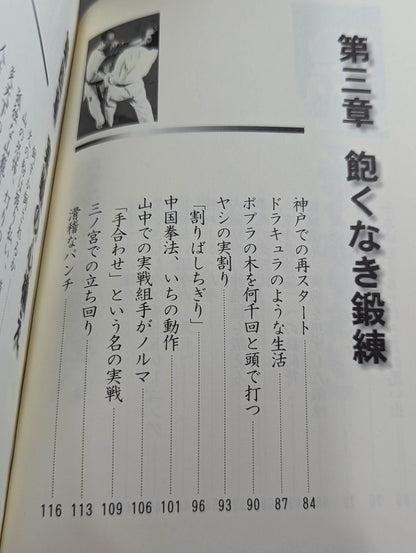 第三章 飽くなき鍛練
神戸での再スタート 84
ドラキュラのような生活 87
ポプラの木を何千回と頭で打つ 90
ヤシの実割り 93
「割りばしちぎり」 96
中国拳法、いちの動作 101
山中での実戦組手がノルマ 106
「手合わせ」という名の実戦 109
三ノ宮での立ち回り 113
滑稽なパンチ 116